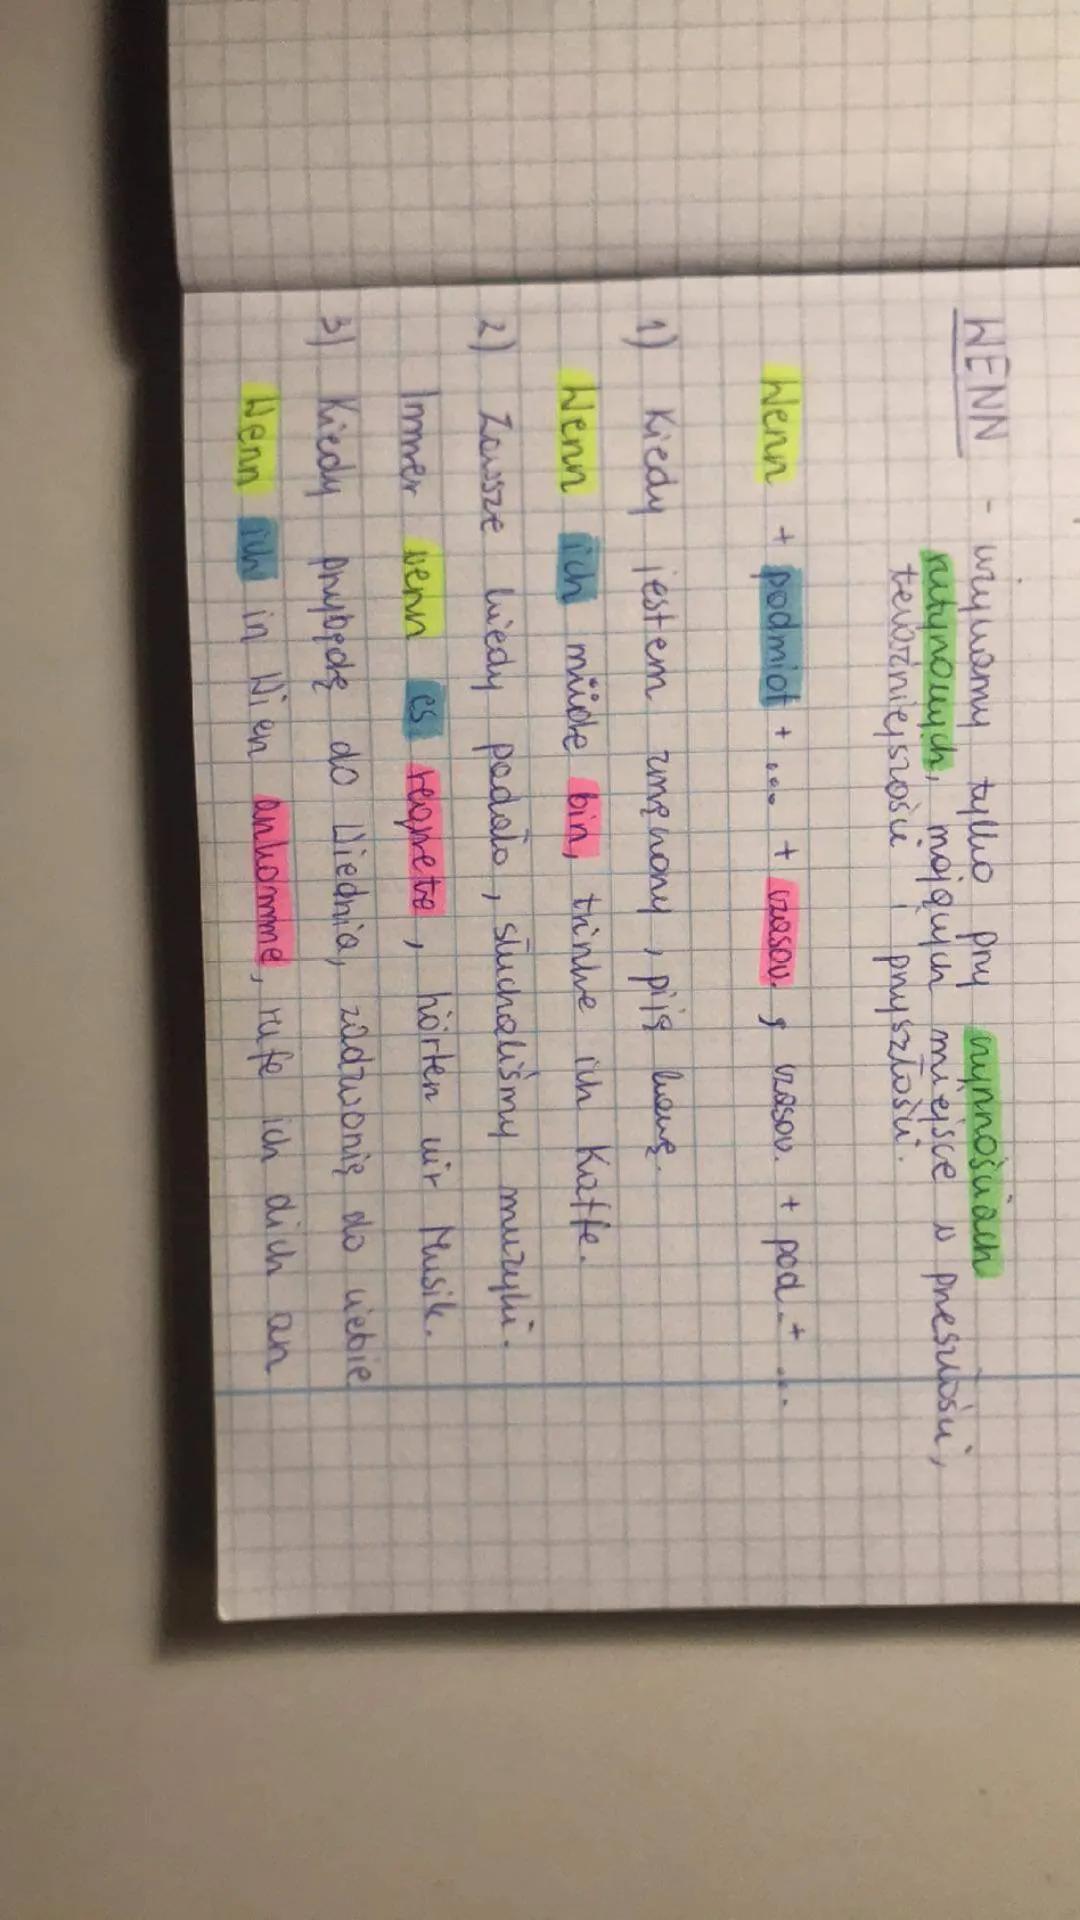 WENN - używamy tylko przy czynnościach
rutynowych, mających miejsce w przeszłości,
teraźniejszości i przyszłości.
Wenn + podmiot + ... + czasow. , czasow. + pod. + ...
1) Kiedy jestem zmęczony, piję kawę.
Wenn ich müde bin, trinke ich Kaffe.
2) Zawsze kiedy padało, słuchaliśmy muzyki.
Immer wenn es regnete, hörten wir Musik.
3) Kiedy przyjadę do Wiednia, zadzwonię do ciebie
Wenn ich in Wien ankomme, rufe ich dich an